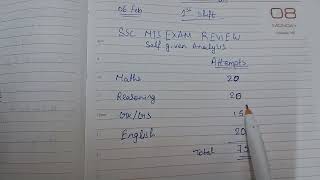 06 Feb 1st Shift
08
MONDAY
SSC MTS EXAM REVIEW
Self given Analysis
Attempts
Maths 20
Reasoning 20
GK/GS 15
English 20
Total 75